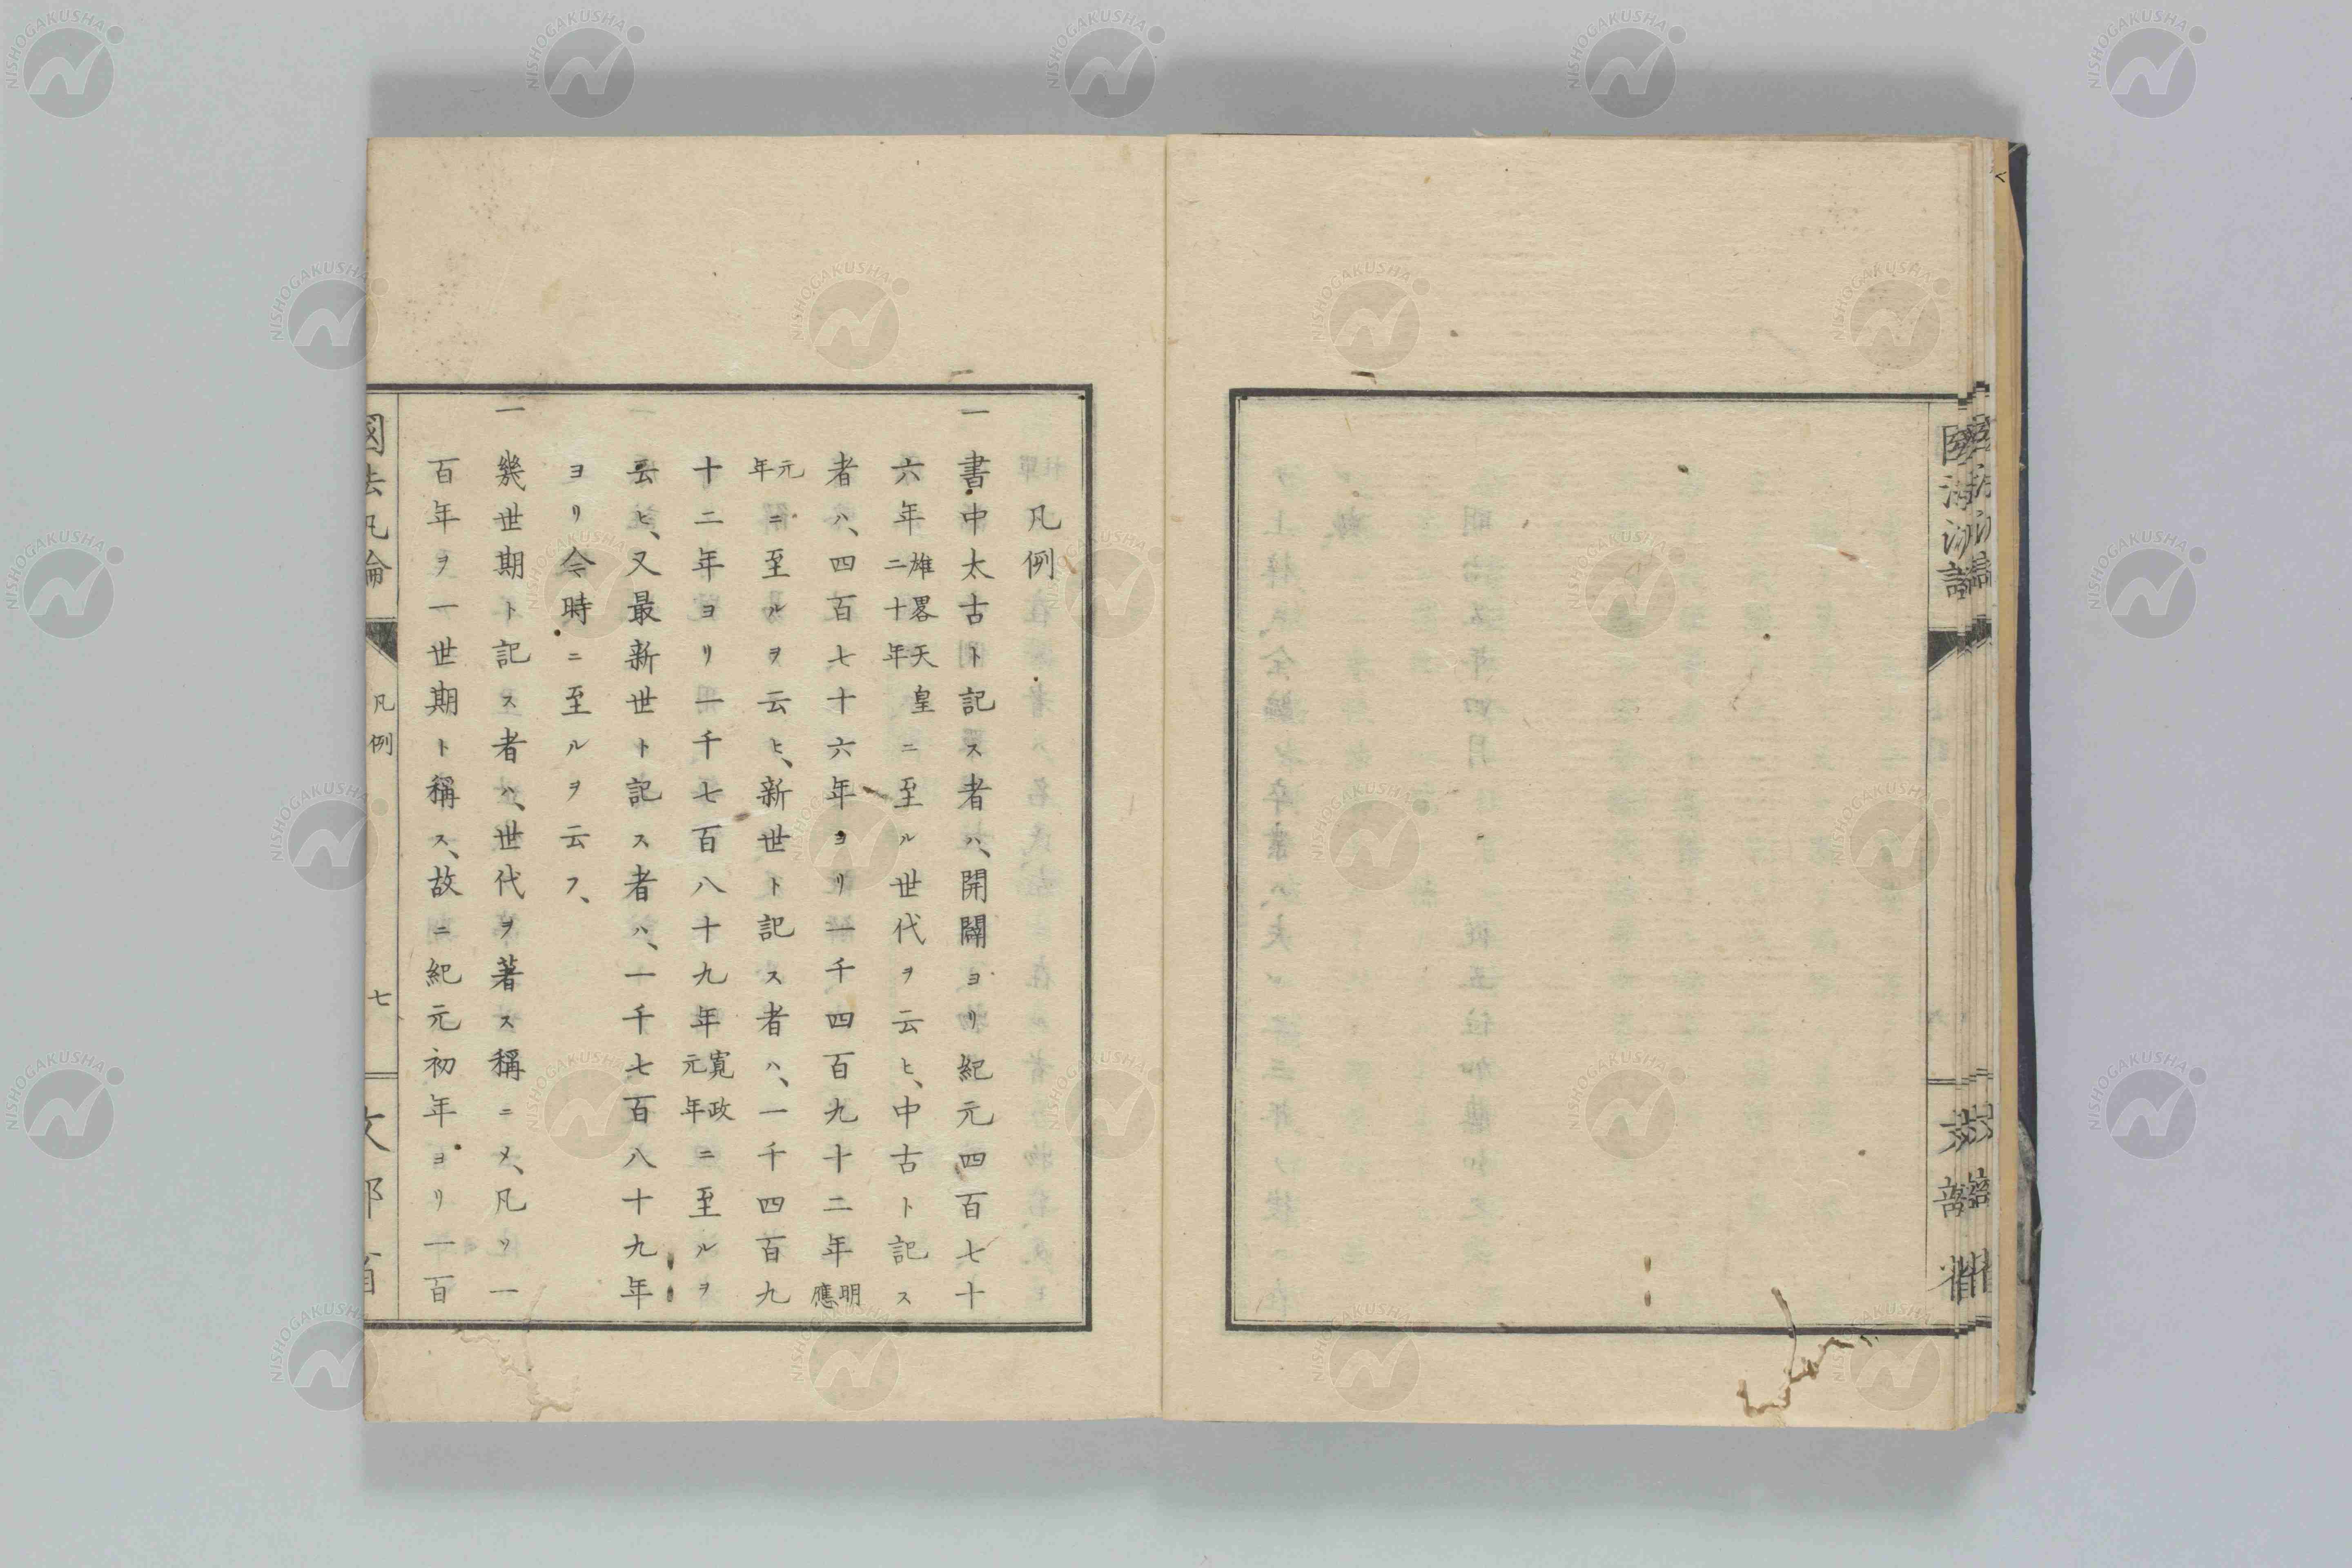 凡例
一 書中太古ト記ス者ハ、開闢ヨリ紀元四百七十
六年雄畧天皇二十年ニ至ル世代ヲ云ヒ、中古ト記ス
者ハ、四百七十六年ヨリ一千四百九十二年明應
元年ニ至ルヲ云ヒ、新世ト記ス者ハ、一千四百九
十二年ヨリ一千七百八十九年寛政元年ニ至ルヲ
云ヒ、又最新世ト記ス者ハ、一千七百八十九年
ヨリ今時ニ至ルヲ云フ、
一 幾世期ト記ス者ハ、世代ヲ著ス稱ニメ、凡ソ一
百年ヲ一世期ト稱ス、故ニ紀元初年ヨリ一百
國法凡論
凡例
七
文部省
NISHOGAKUSHA